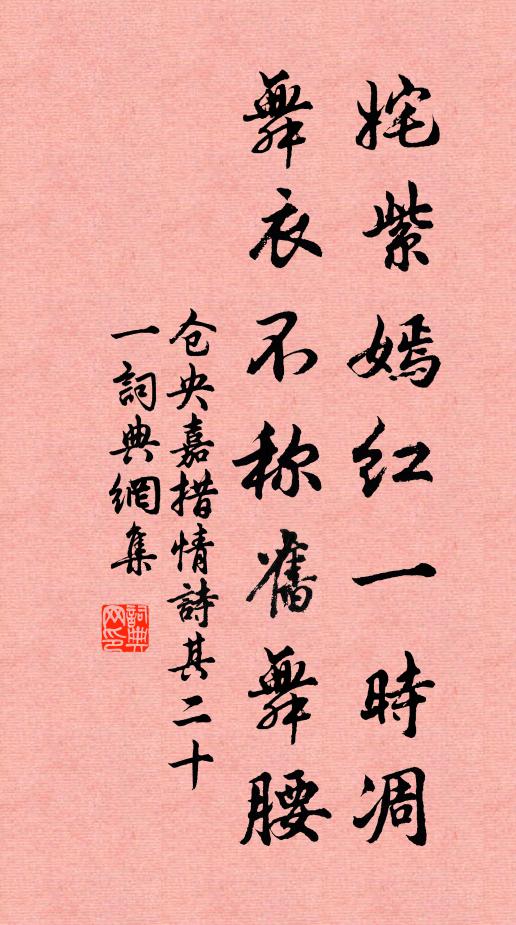 姹紫嫣红一時凋
舞衣不称舊舞腰
仓央嘉措情詩其二十
一詞典網集
詞典网印